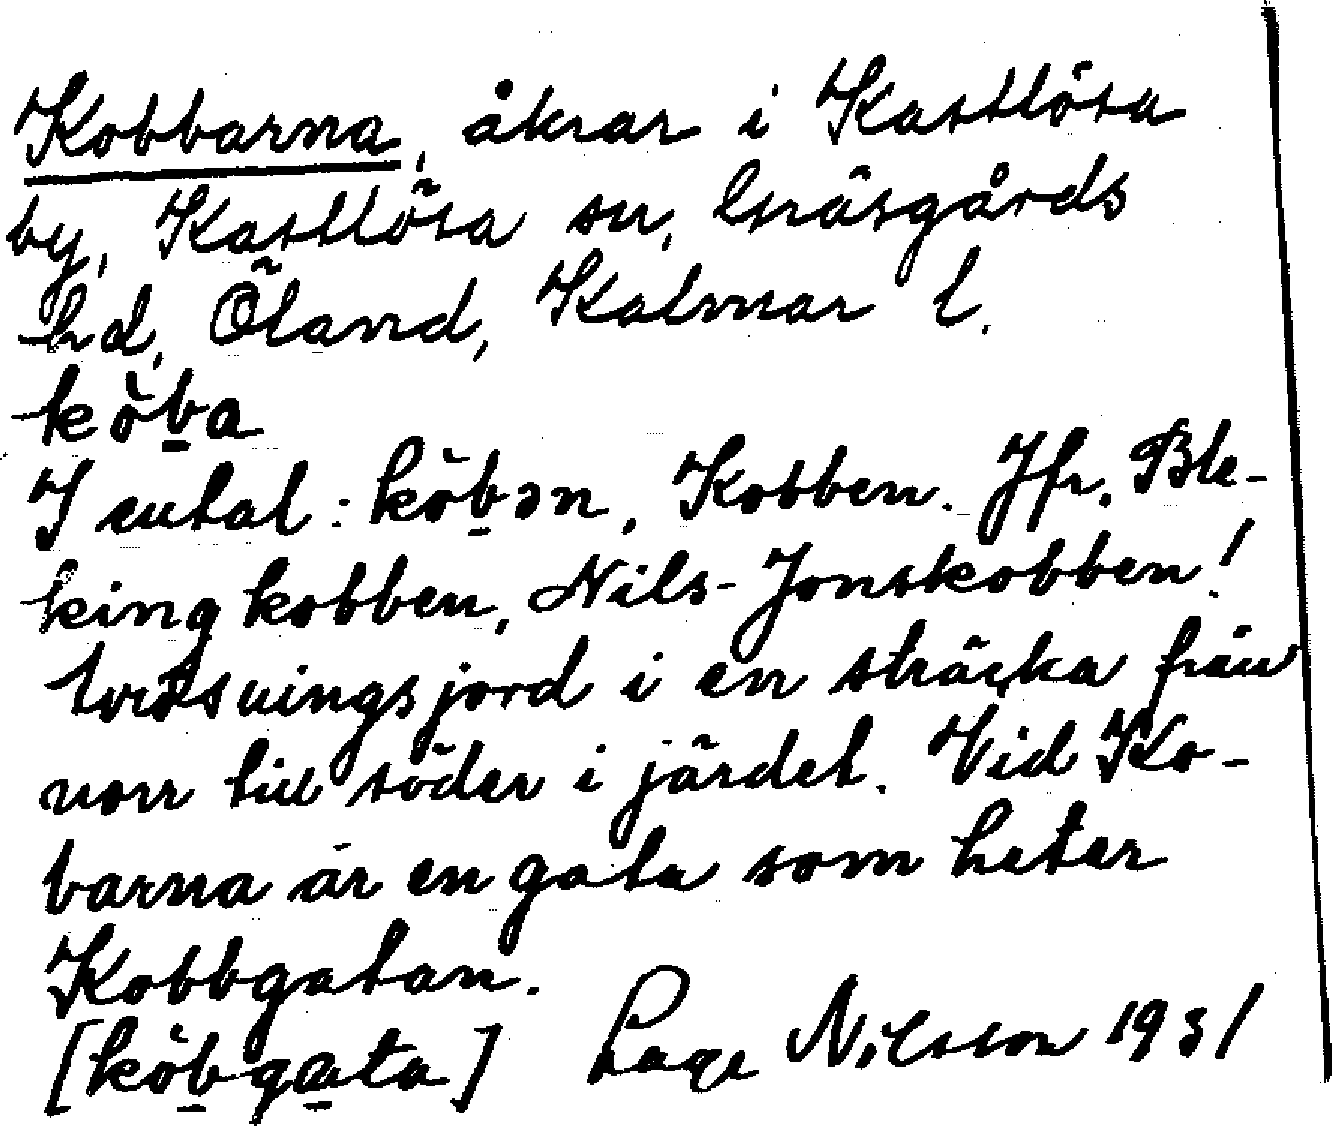 Kobbarna, åkrar i Kastlösa
by, Kastlösa sn, Gräsgårds
hd, Öland, Kalmar l.
kòb̠a
I ental: kòb̠ən, Kobben. Jfr. Ble-
kingkobben, Nils-Jonskobben!
i en sträcka från
norr till söder i järdet. Vid Ko-
barna är en gata som heter
Kobbgatan.
[kòb̠ga̠ta] Lage Nilsson 1931